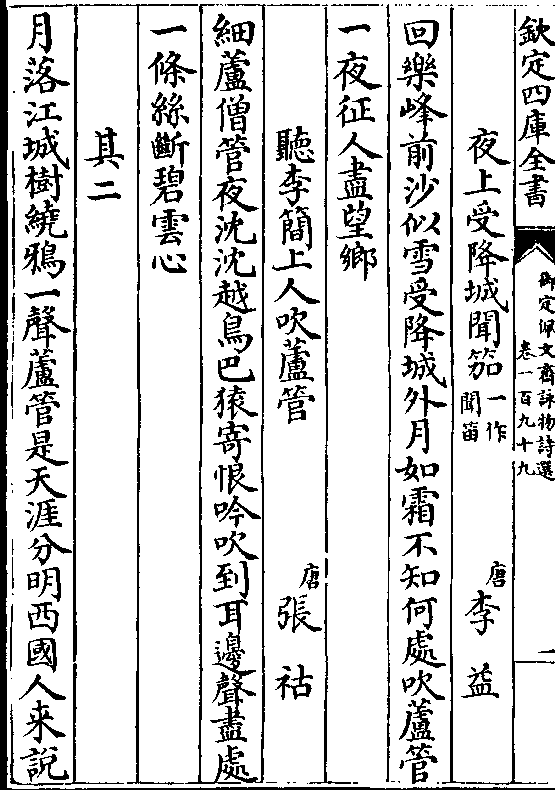 欽定四庫全書
御定佩文齋詠物詩選
卷一百九十九
一
夜上受降城聞笳一作聞笛
唐李益
回樂峰前沙似雪受降城外月如霜不知何處吹蘆管
一夜征人盡望鄉
聽李簡上人吹蘆管
唐張祜
細蘆僧管夜沈沈越鳥巴猿寄恨吟吹到耳邊聲盡處
一條絲斷碧雲心
其二
月落江城樹繞鴉一聲蘆管是天涯分明西國人来說